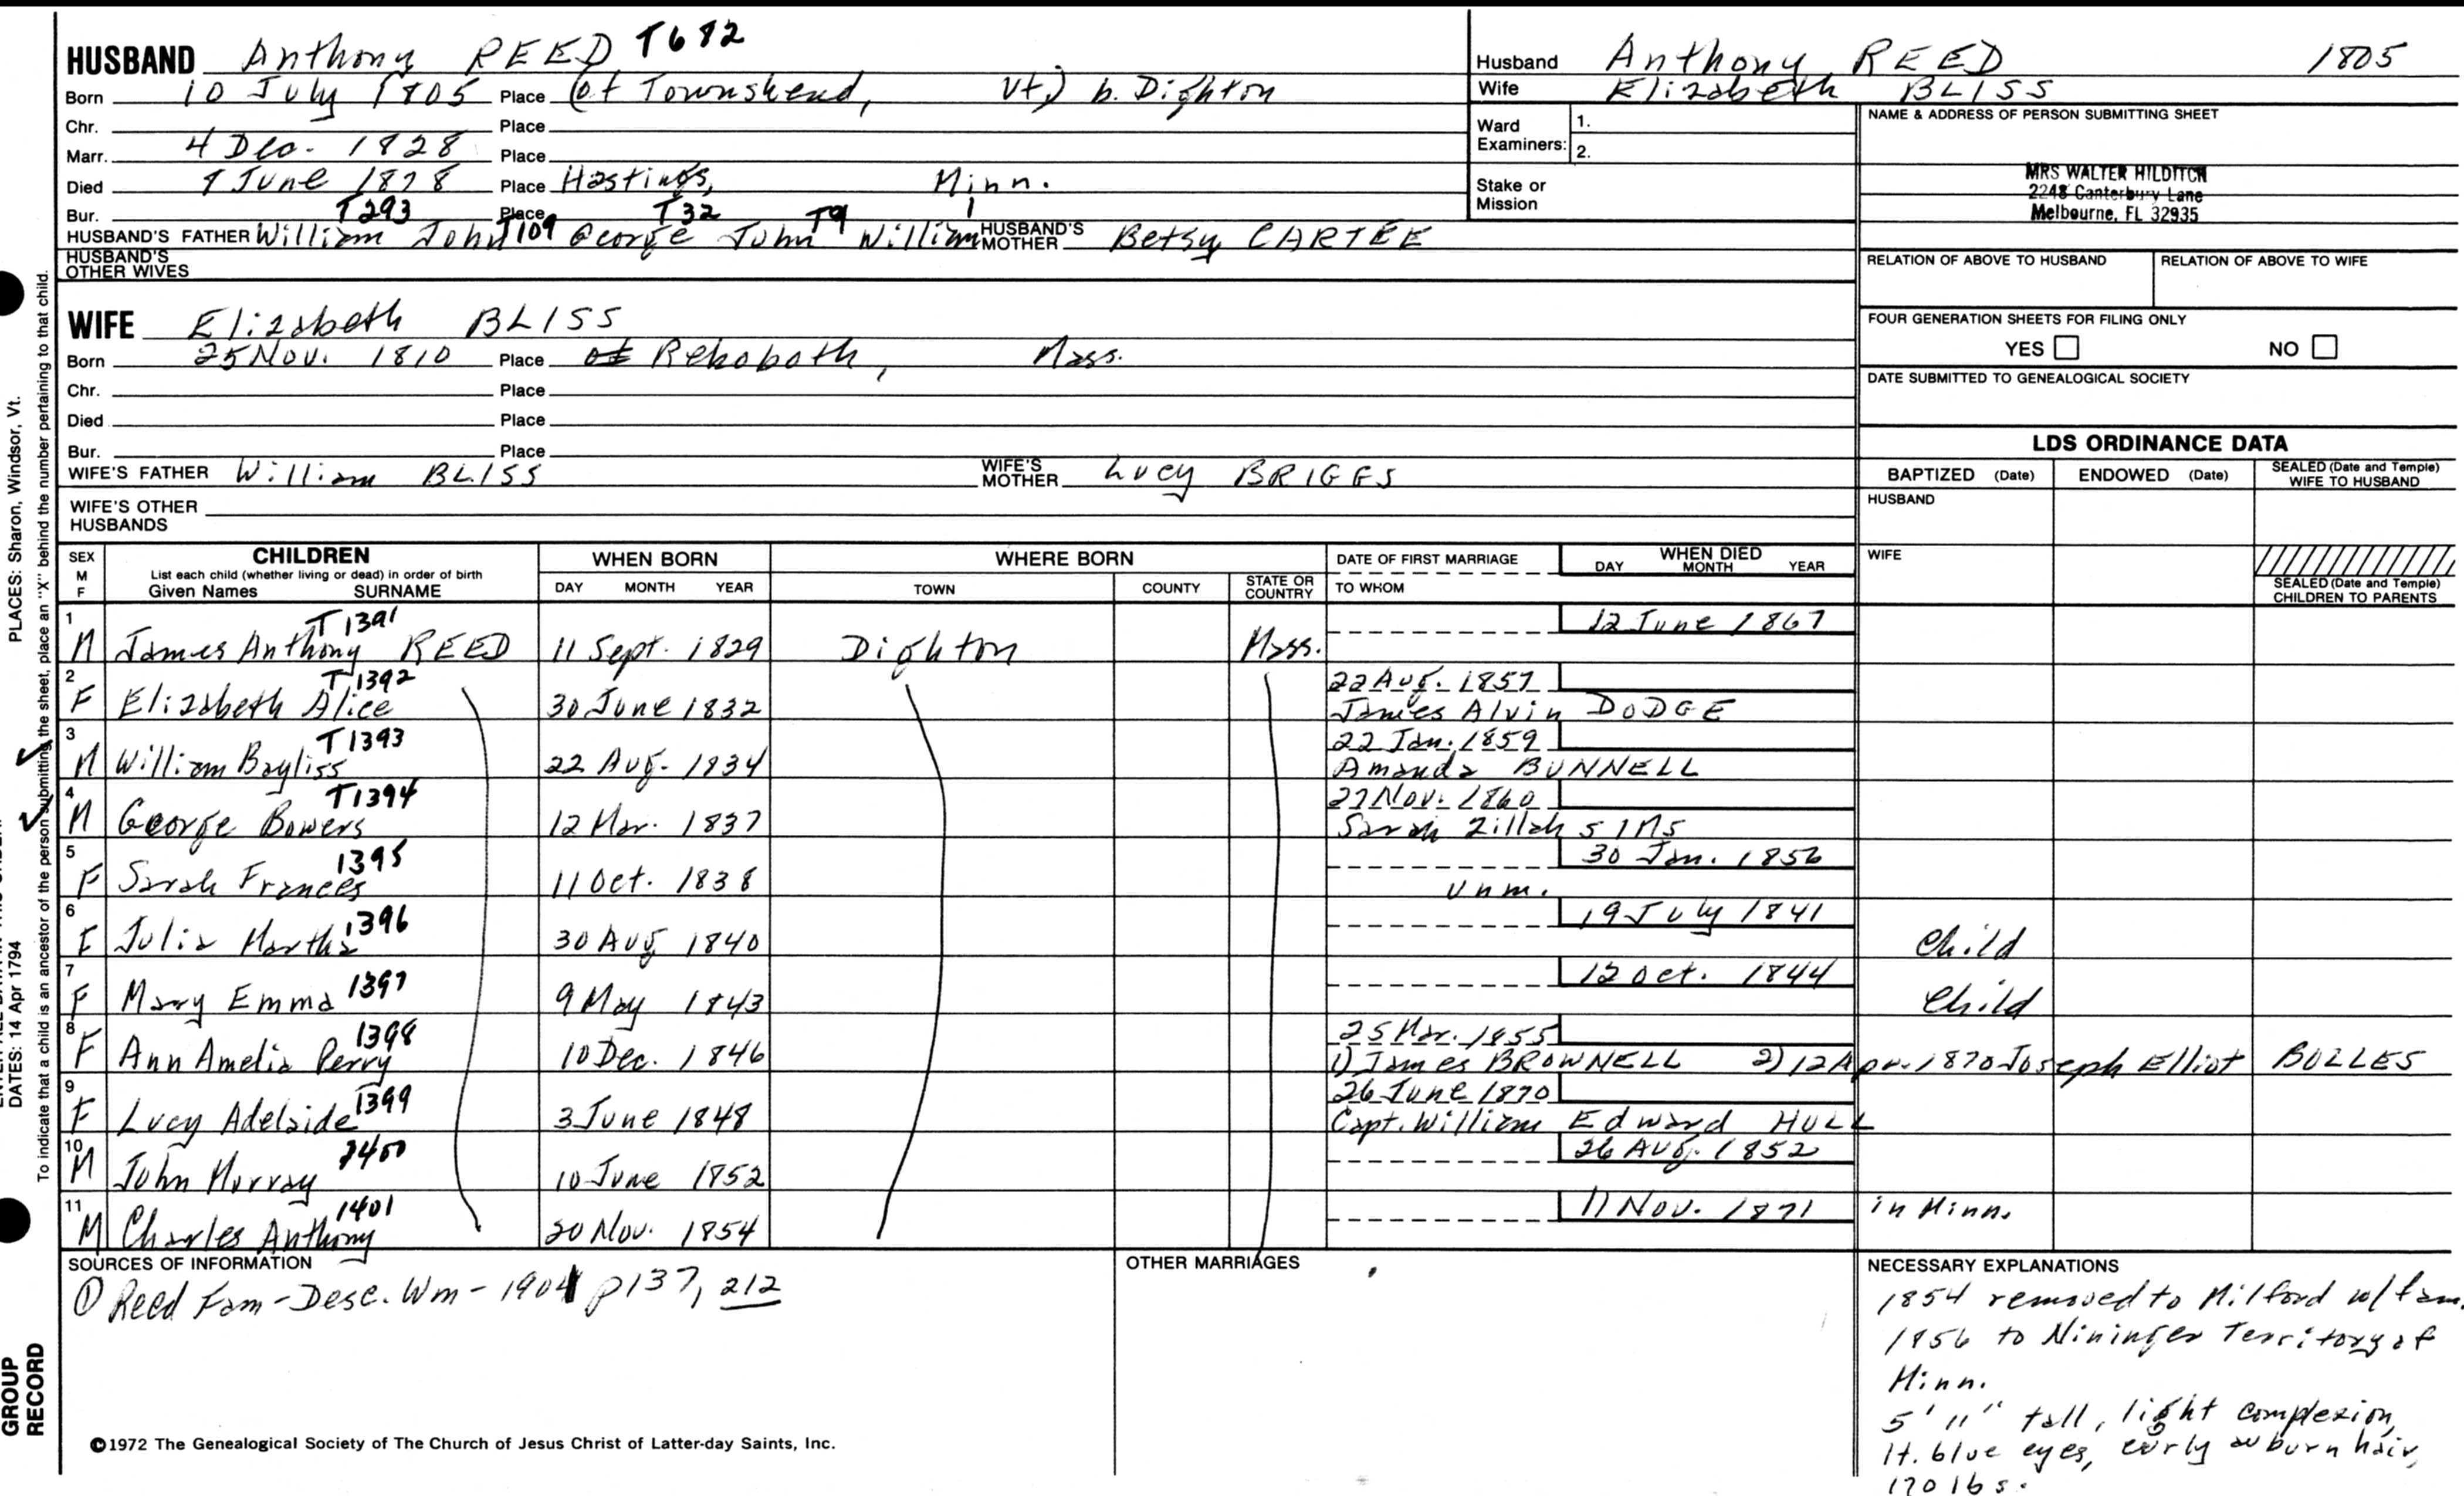 HUSBAND Anthony REED T682
Born 10 July 1805 Place (of Townshend, Vt.) b. Dighton
Chr. Place
Marr. 4 Dec. 1828 Place
Died June 1878 Place Hastings, Minn.
Bur. Place
T293 T109 T32 T9 1
HUSBAND'S FATHER William John George John William HUSBAND'S MOTHER Betsy CARTEE
HUSBAND'S OTHER WIVES
WIFE Elizabeth BLISS
Born 25 Nov. 1810 Place of Rehoboth, Mass.
Chr. Place
Died Place
Bur. Place
WIFE'S FATHER William BLISS WIFE'S MOTHER Lucy BRIGGS
WIFE'S OTHER HUSBANDS
Husband Anthony REED 1805
Wife Elizabeth BLISS
Ward Examiners: 1.
2.
Stake or Mission
NAME & ADDRESS OF PERSON SUBMITTING SHEET
MRS WALTER HILDITCH
2248 Canterbury Lane
Melbourne, FL 32935
RELATION OF ABOVE TO HUSBAND RELATION OF ABOVE TO WIFE
FOUR GENERATION SHEETS FOR FILING ONLY
YES NO
DATE SUBMITTED TO GENEALOGICAL SOCIETY
LDS ORDINANCE DATA
BAPTIZED (Date) ENDOWED (Date) SEALED (Date and Temple) WIFE TO HUSBAND
HUSBAND
WIFE
SEALED (Date and Temple) CHILDREN TO PARENTS
SEX M F CHILDREN List each child (whether living or dead) in order of birth Given Names SURNAME
WHEN BORN DAY MONTH YEAR
WHERE BORN TOWN COUNTY STATE OR COUNTRY
DATE OF FIRST MARRIAGE TO WHOM
WHEN DIED DAY MONTH YEAR
1 M James Anthony REED T1391 11 Sept. 1829 Dighton Mass. 12 June 1867
2 F Elizabeth Alice T1392 30 June 1832 22 Aug. 1857 James Alvin DODGE
3 M William Bayliss T1393 22 Aug. 1834 22 Jan. 1859 Amanda BUNNELL
4 M George Bowers T1394 12 Mar. 1837 27 Nov. 1860 Sarah Zillah SIMS
5 F Sarah Frances 1395 11 Oct. 1838 unm. 30 Jan. 1856
6 F Julia Martha 1396 30 Aug 1840 19 July 1841 Child
7 F Mary Emma 1397 9 May 1843 12 Oct. 1844 Child
8 F Ann Amelia Perry 1398 10 Dec. 1846 25 Mar. 1855 1) James BROWNELL 2) 12 Apr. 1870 Joseph Elliot BOLLES
9 F Lucy Adelaide 1399 3 June 1848 26 June 1870 Capt. William Edward HULL
10 M John Murray 1400 10 June 1852 26 Aug. 1852
11 M Charles Anthony 1401 20 Nov. 1854 11 Nov. 1871 in Minn.
SOURCES OF INFORMATION
① Reed Fam - Desc. Wm - 1901 p137, 212
OTHER MARRIAGES
NECESSARY EXPLANATIONS
1854 removed to Milford w/ fam.
1856 to Nininger Territory of
Minn.
5' 11" tall, light complexion,
lt. blue eyes, curly auburn hair,
170 lbs.
©1972 The Genealogical Society of The Church of Jesus Christ of Latter-day Saints, Inc.
PLACES: Sharon, Windsor, Vt.
DATES: 14 Apr 1794
To indicate that a child is an ancestor of the person submitting the sheet, place an "X" behind the number pertaining to that child.
GROUP
RECORD